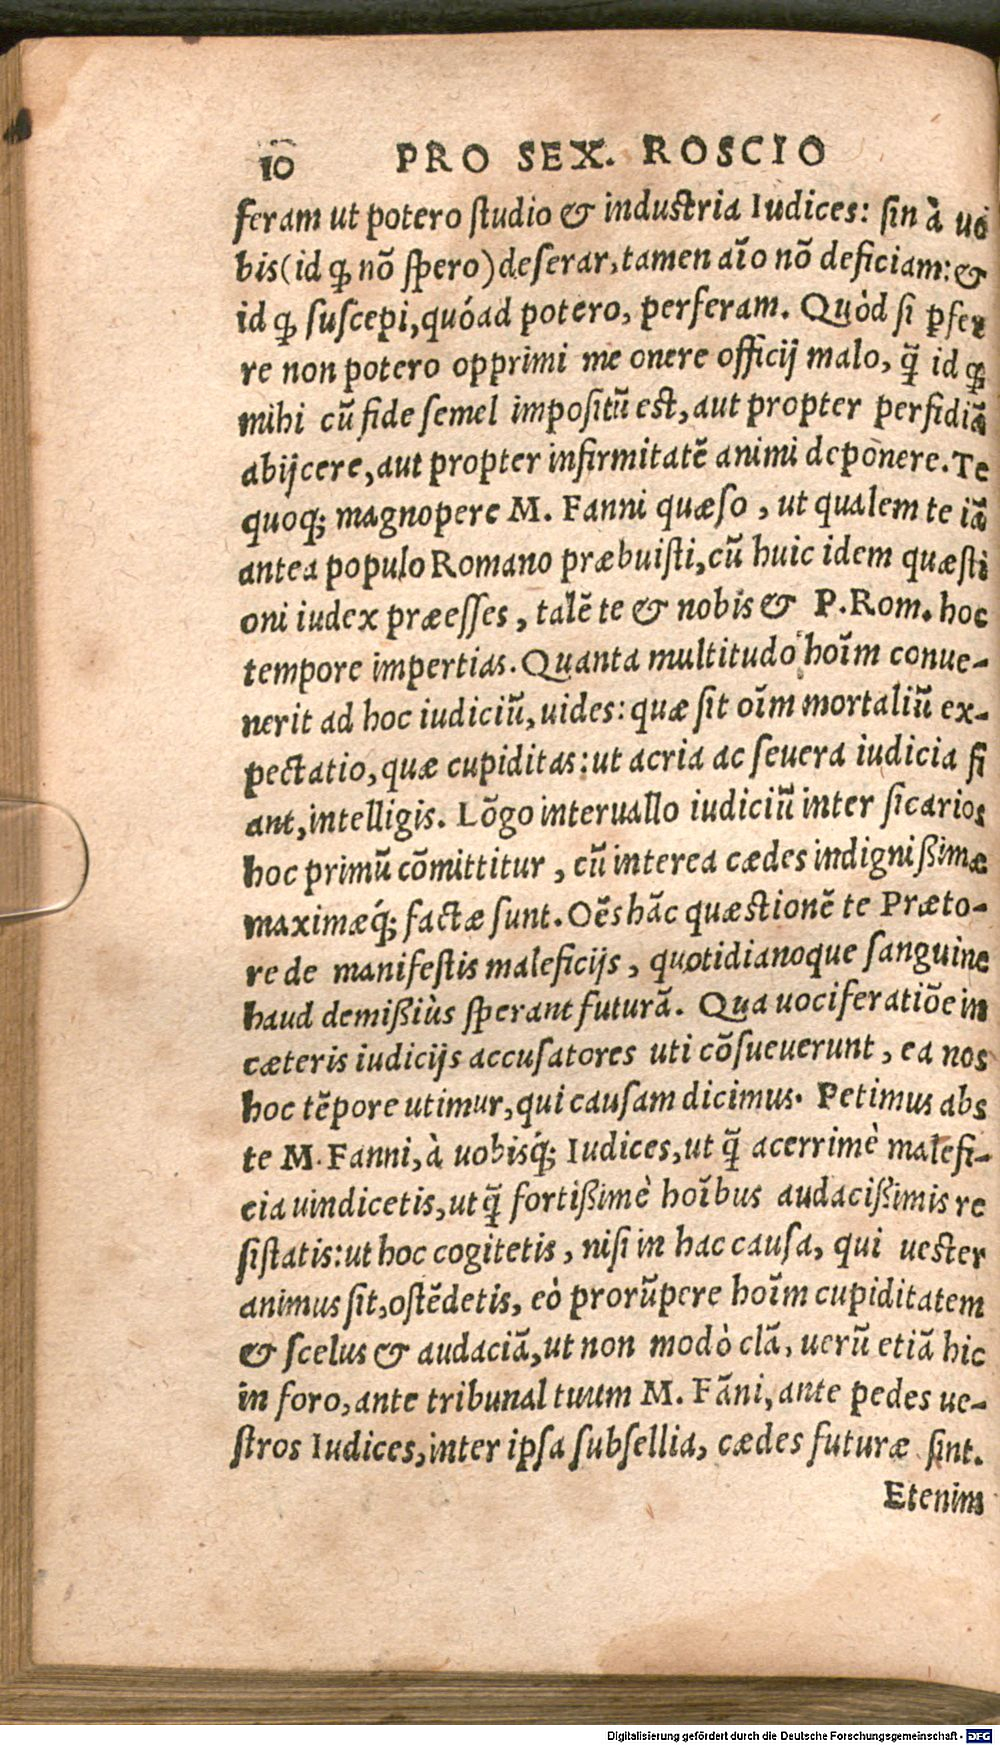 10 PRO SEX. ROSCIO
feram ut potero studio & industria Iudices: sin à uo
bis (id ꝙ nō spero) deserar, tamen aīo nō deficiam: &
id ꝙ suscepi, quóad potero, perferam. Quòd si ꝑfer
re non potero opprimi me onere officij malo, q̃ id ꝙ
mihi cū fide semel impositū est, aut propter perfidiā
abijcere, aut propter infirmitatē animi deponere. Te
quoq; magnopere M. Fanni quæso, ut qualem te iā
antea populo Romano præbuisti, cū huic idem quæsti
oni iudex præesses, talē te & nobis & P. Rom. hoc
tempore impertias. Quanta multitudo hoīm conue-
nerit ad hoc iudiciū, uides: quæ sit oīm mortaliū ex-
pectatio, quæ cupiditas: ut acria ac seuera iudicia fi
ant, intelligis. Lōgo interuallo iudiciū inter sicarios
hoc primū cōmittitur, cū interea cædes indignißimæ
maximæq́; factæ sunt. Oēs hāc quæstionē te Præto-
re de manifestis maleficijs, quotidianoque sanguine
haud demißiùs sperant futurā. Qua uociferatiōe in
cæteris iudicijs accusatores uti cōsueuerunt, ea nos
hoc tēpore utimur, qui causam dicimus. Petimus abs
te M. Fanni, à uobisq́; Iudices, ut q̃ acerrimè malefi-
cia uindicetis, ut q̃ fortißimè hoībus audacißimis re
sistatis: ut hoc cogitetis, nisi in hac causa, qui uester
animus sit, ostēdetis, eò prorūpere hoīm cupiditatem
& scelus & audaciā, ut non modò clā, uerū etiā hic
in foro, ante tribunal tuum M. Fāni, ante pedes ue-
stros Iudices, inter ipsa subsellia, cædes futuræ sint.
Etenim
Digitalisierung gefördert durch die Deutsche Forschungsgemeinschaft - DFG